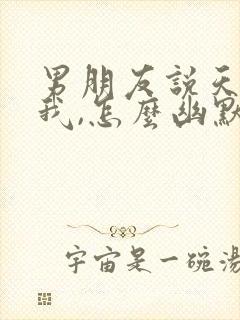 男朋友說天
我,怎麼幽默
宇宙是一碗湯